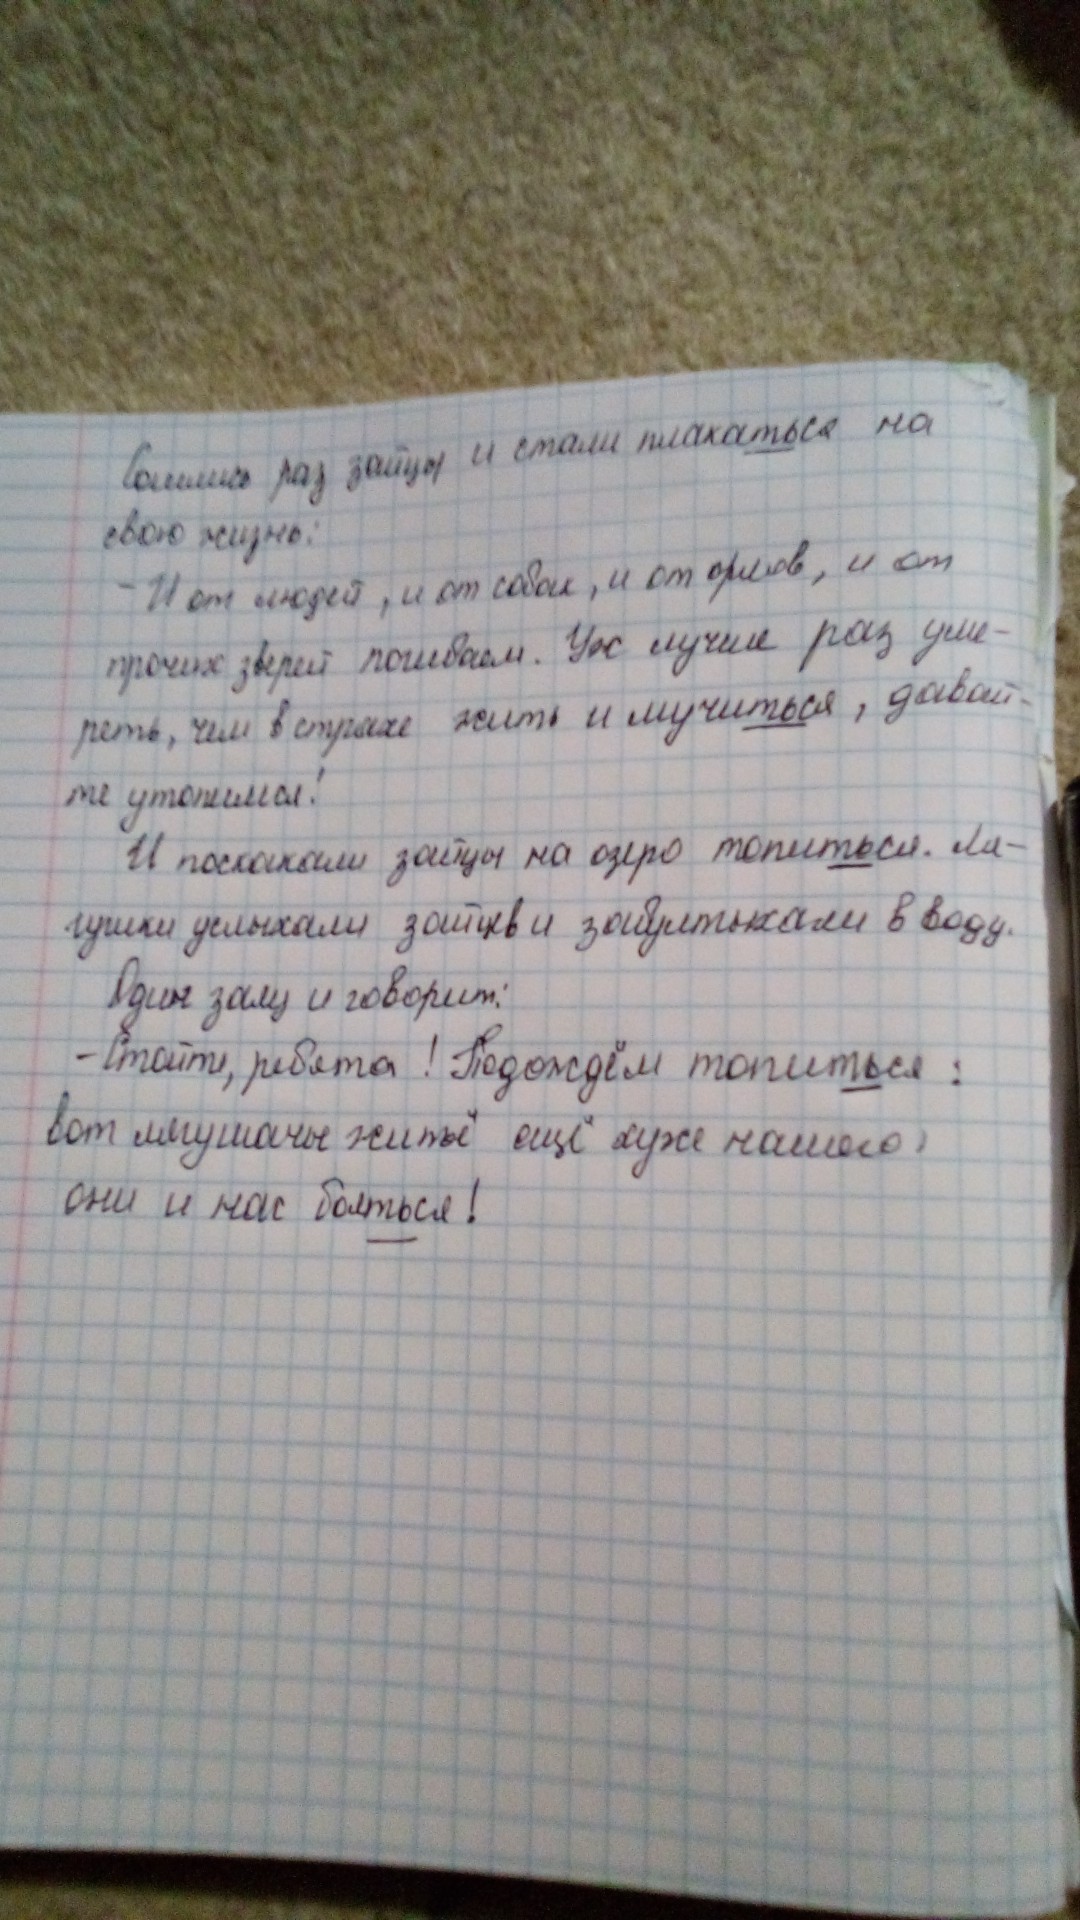 Сошлись раз зайцы и стали плакаться на
свою жизнь:
- И от людей, и от собак, и от орлов, и от
прочих зверей погибаем. Уж лучше раз уме-
реть, чем в страхе жить и мучиться, давай-
те утопимся!
И поскакали зайцы на озеро топиться. Ля-
гушки услыхали зайцев и забултыхали в воду.
Один заяц и говорит:
- Стойте, ребята! Подождём топиться:
вот лягушачье житьё ещё хуже нашего:
они и нас бояться!